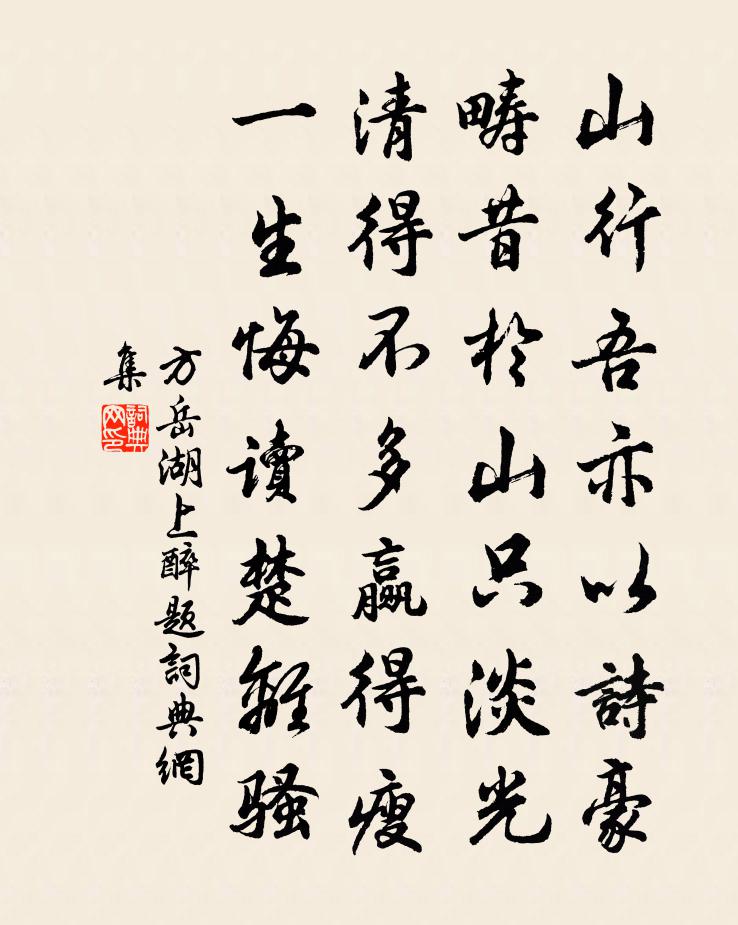 山行吾亦以詩豪
畴昔於山只淡光
清得不多贏得瘦
一生悔读楚離骚
方岳湖上醉题詞典網
集
詞典
网印